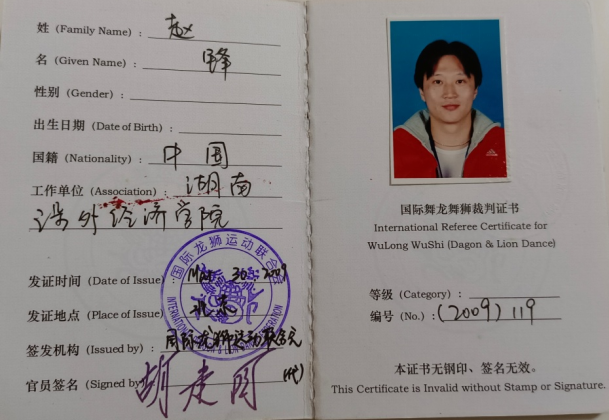 姓 (Family Name) : 赵
名 (Given Name) : 锋
性别 (Gender) :
出生日期 (Date of Birth) :
国籍 (Nationality) : 中国
工作单位 (Association) : 湖南
涉外经济学院
发证时间 (Date of Issue) : Mar 30 2009
发证地点 (Place of Issue) : 北京
签发机构 (Issued by) : 国际龙狮运动联合会
官员签名 (Signed by)
国际龙狮运动联合会
国际舞龙舞狮裁判证书
International Referee Certificate for
WuLong WuShi (Dagon & Lion Dance)
等级 (Category) :
编号 (No.) : (2009) 119
本证书无钢印、签名无效。
This Certificate is Invalid without Stamp or Signature.